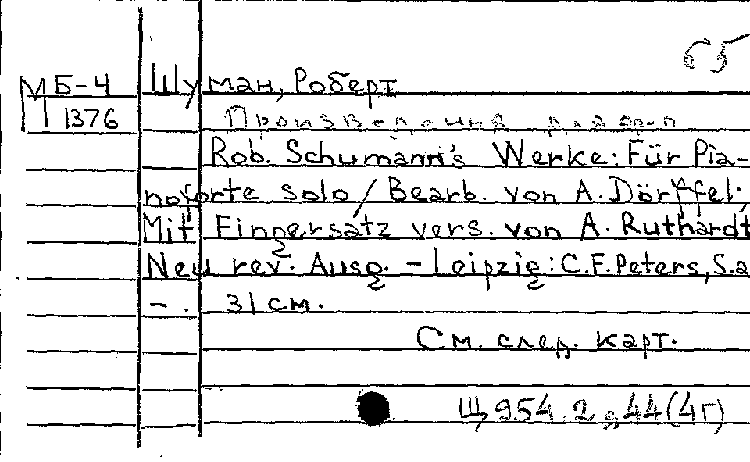 65
МБ-4 Шуман, Роберт
М 1376 Произведения для ф-п
Rob. Schumann's Werke: Für Pia-
noforte solo / Bearb. von A. Dörffel;
Mit Fingersatz vers. von A. Ruthardt
Neu rev. Ausg. – Leipzig: C.F. Peters, S.a
–. 31 см.
См. след. карт.
Щ 954.2 44(4Г)